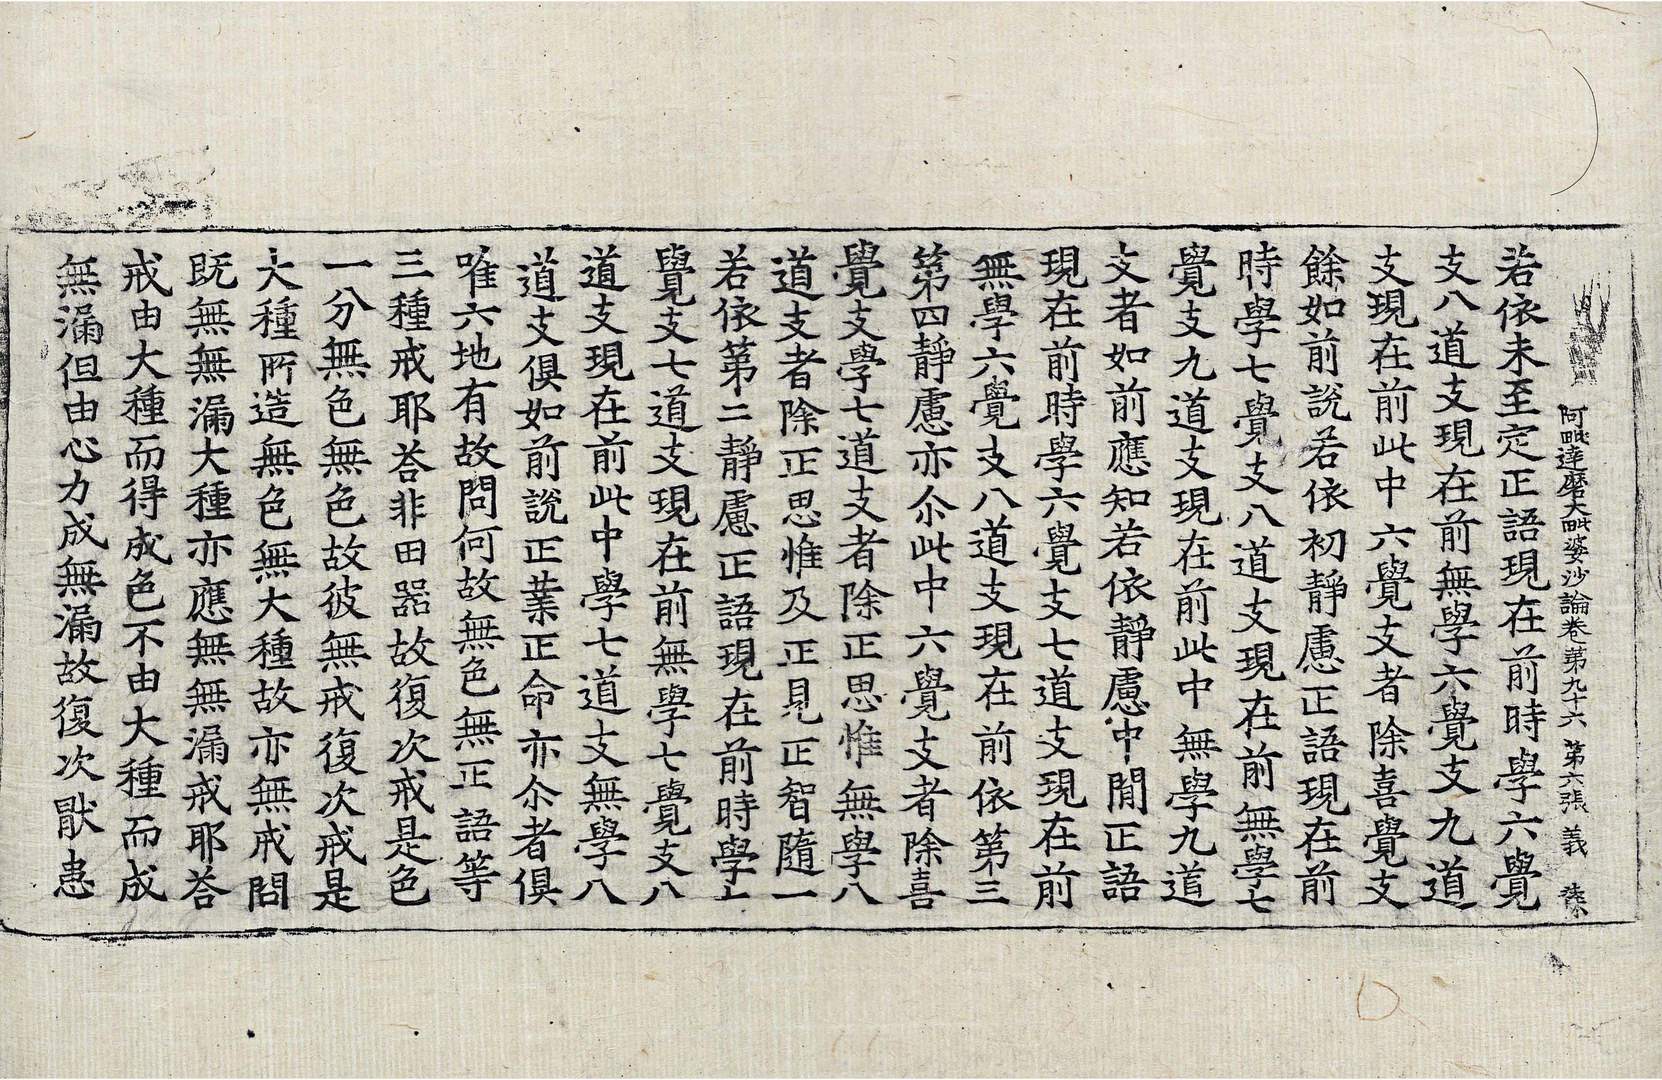 阿毗達磨大毗婆沙論卷第九十六 第六張 義
若依未至定正語現在前時學六覺
支八道支現在前無學六覺支九道
支現在前此中六覺支者除喜覺支
餘如前說若依初靜慮正語現在前
時學七覺支八道支現在前無學七
覺支九道支現在前此中無學九道
支者如前應知若依靜慮中閒正語
現在前時學六覺支七道支現在前
無學六覺支八道支現在前依第三
第四靜慮亦尒此中六覺支者除喜
覺支學七道支者除正思惟無學八
道支者除正思惟及正見正智隨一
若依第二靜慮正語現在前時學七
覺支七道支現在前無學七覺支八
道支現在前此中學七道支無學八
道支俱如前說正業正命亦尒者俱
唯六地有故問何故無色無正語等
三種戒耶荅非田器故復次戒是色
一分無色無色故彼無戒復次戒是
大種所造無色無大種故亦無戒問
既無無漏大種亦應無無漏戒耶荅
戒由大種而得成色不由大種而成
無漏但由心力成無漏故復次猒患